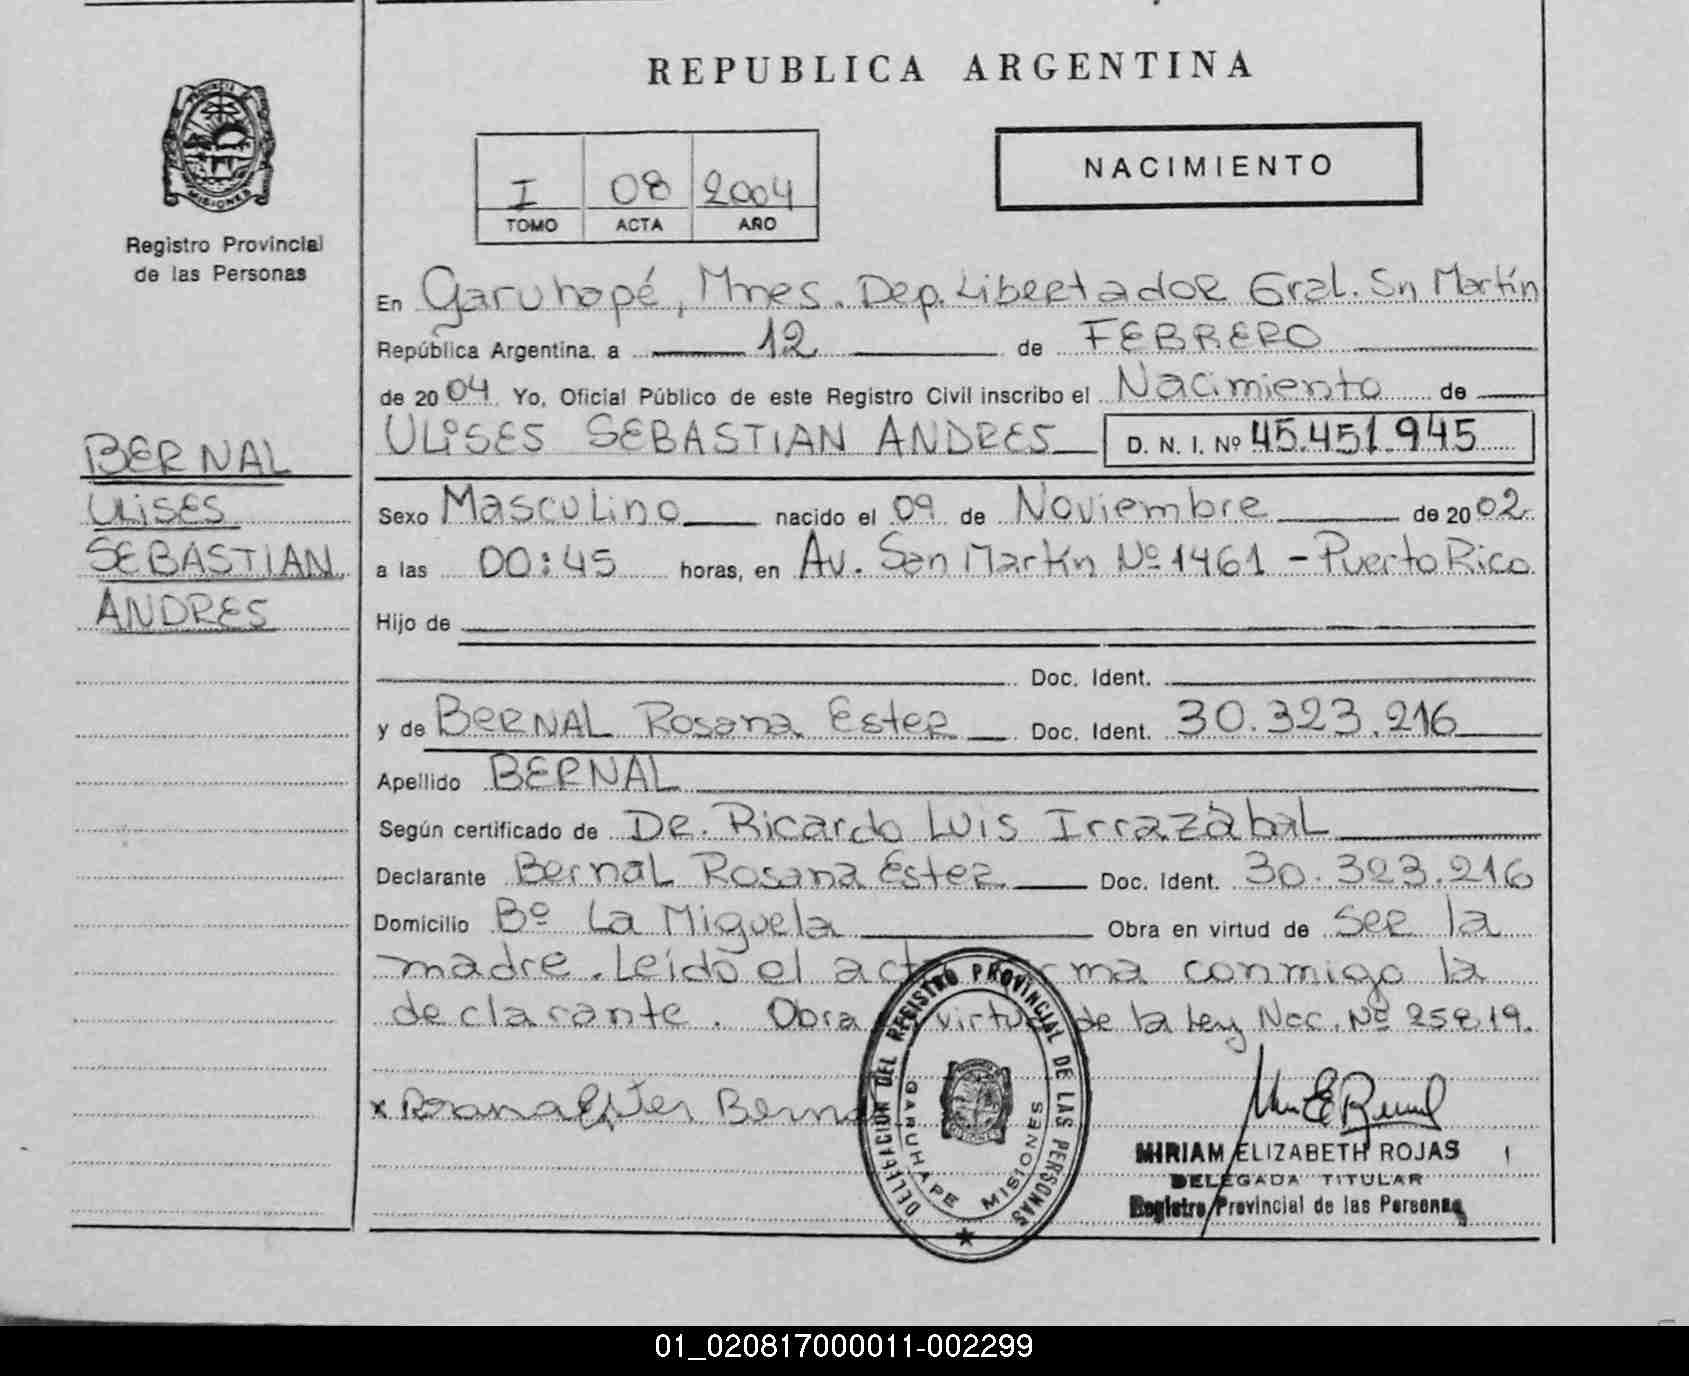 REPUBLICA ARGENTINA
PROVINCIA DE MISIONES
Registro Provincial
de las Personas
I 08 2004
TOMO ACTA AÑO
NACIMIENTO
En Garuhapé, Mnes. Dep. Libertador Gral. Sn Martín
República Argentina. a 12 de FEBRERO
de 2004 Yo, Oficial Público de este Registro Civil inscribo el Nacimiento de
ULISES SEBASTIAN ANDRES D. N. I. Nº 45.451.945
BERNAL
ULISES
SEBASTIAN
ANDRES
Sexo Masculino nacido el 09 de Noviembre de 2002
a las 00:45 horas, en Av. San Martin Nº 1461 - Puerto Rico
Hijo de
Doc. Ident.
y de BERNAL Rosana Ester Doc. Ident. 30.323.216
Apellido BERNAL
Según certificado de DR. Ricardo Luis Irrazàbal
Declarante Bernal Rosana Ester Doc. Ident. 30.323.216
Domicilio Bº La Miguela Obra en virtud de ser la
madre. Leído el acta firma conmigo la
declarante. Obra virtud de la Ley Nac. Nº 25819.
x Rosana Ester Bernal
DELEGACION DEL REGISTRO PROVINCIAL DE LAS PERSONAS
GARUHAPE MISIONES
MIRIAM ELIZABETH ROJAS
DELEGADA TITULAR
Registro Provincial de las Personas
01_020817000011-002299